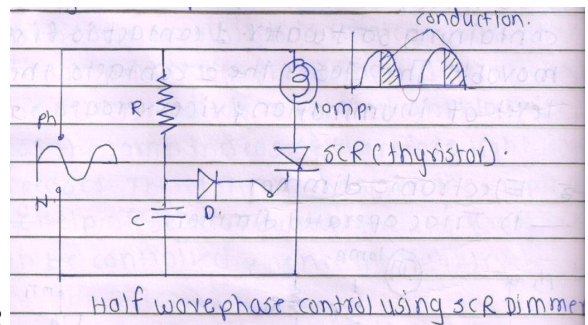 conduction.
lamp.
Ph
R
SCR (thyristor).
N
D.
C
Half wave phase control using SCR Dimmer